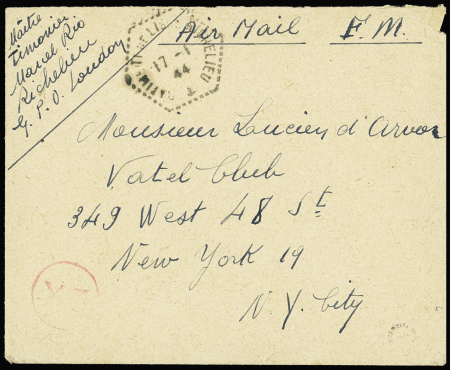 Maître
timonier
Marcel Rio
Richelieu
G. P. O. London
17 - 1
44
Air Mail F. M.
Monsieur Lucien d'Arvor
Vatel Club
349 West 48 St
New York 19
N. Y. City